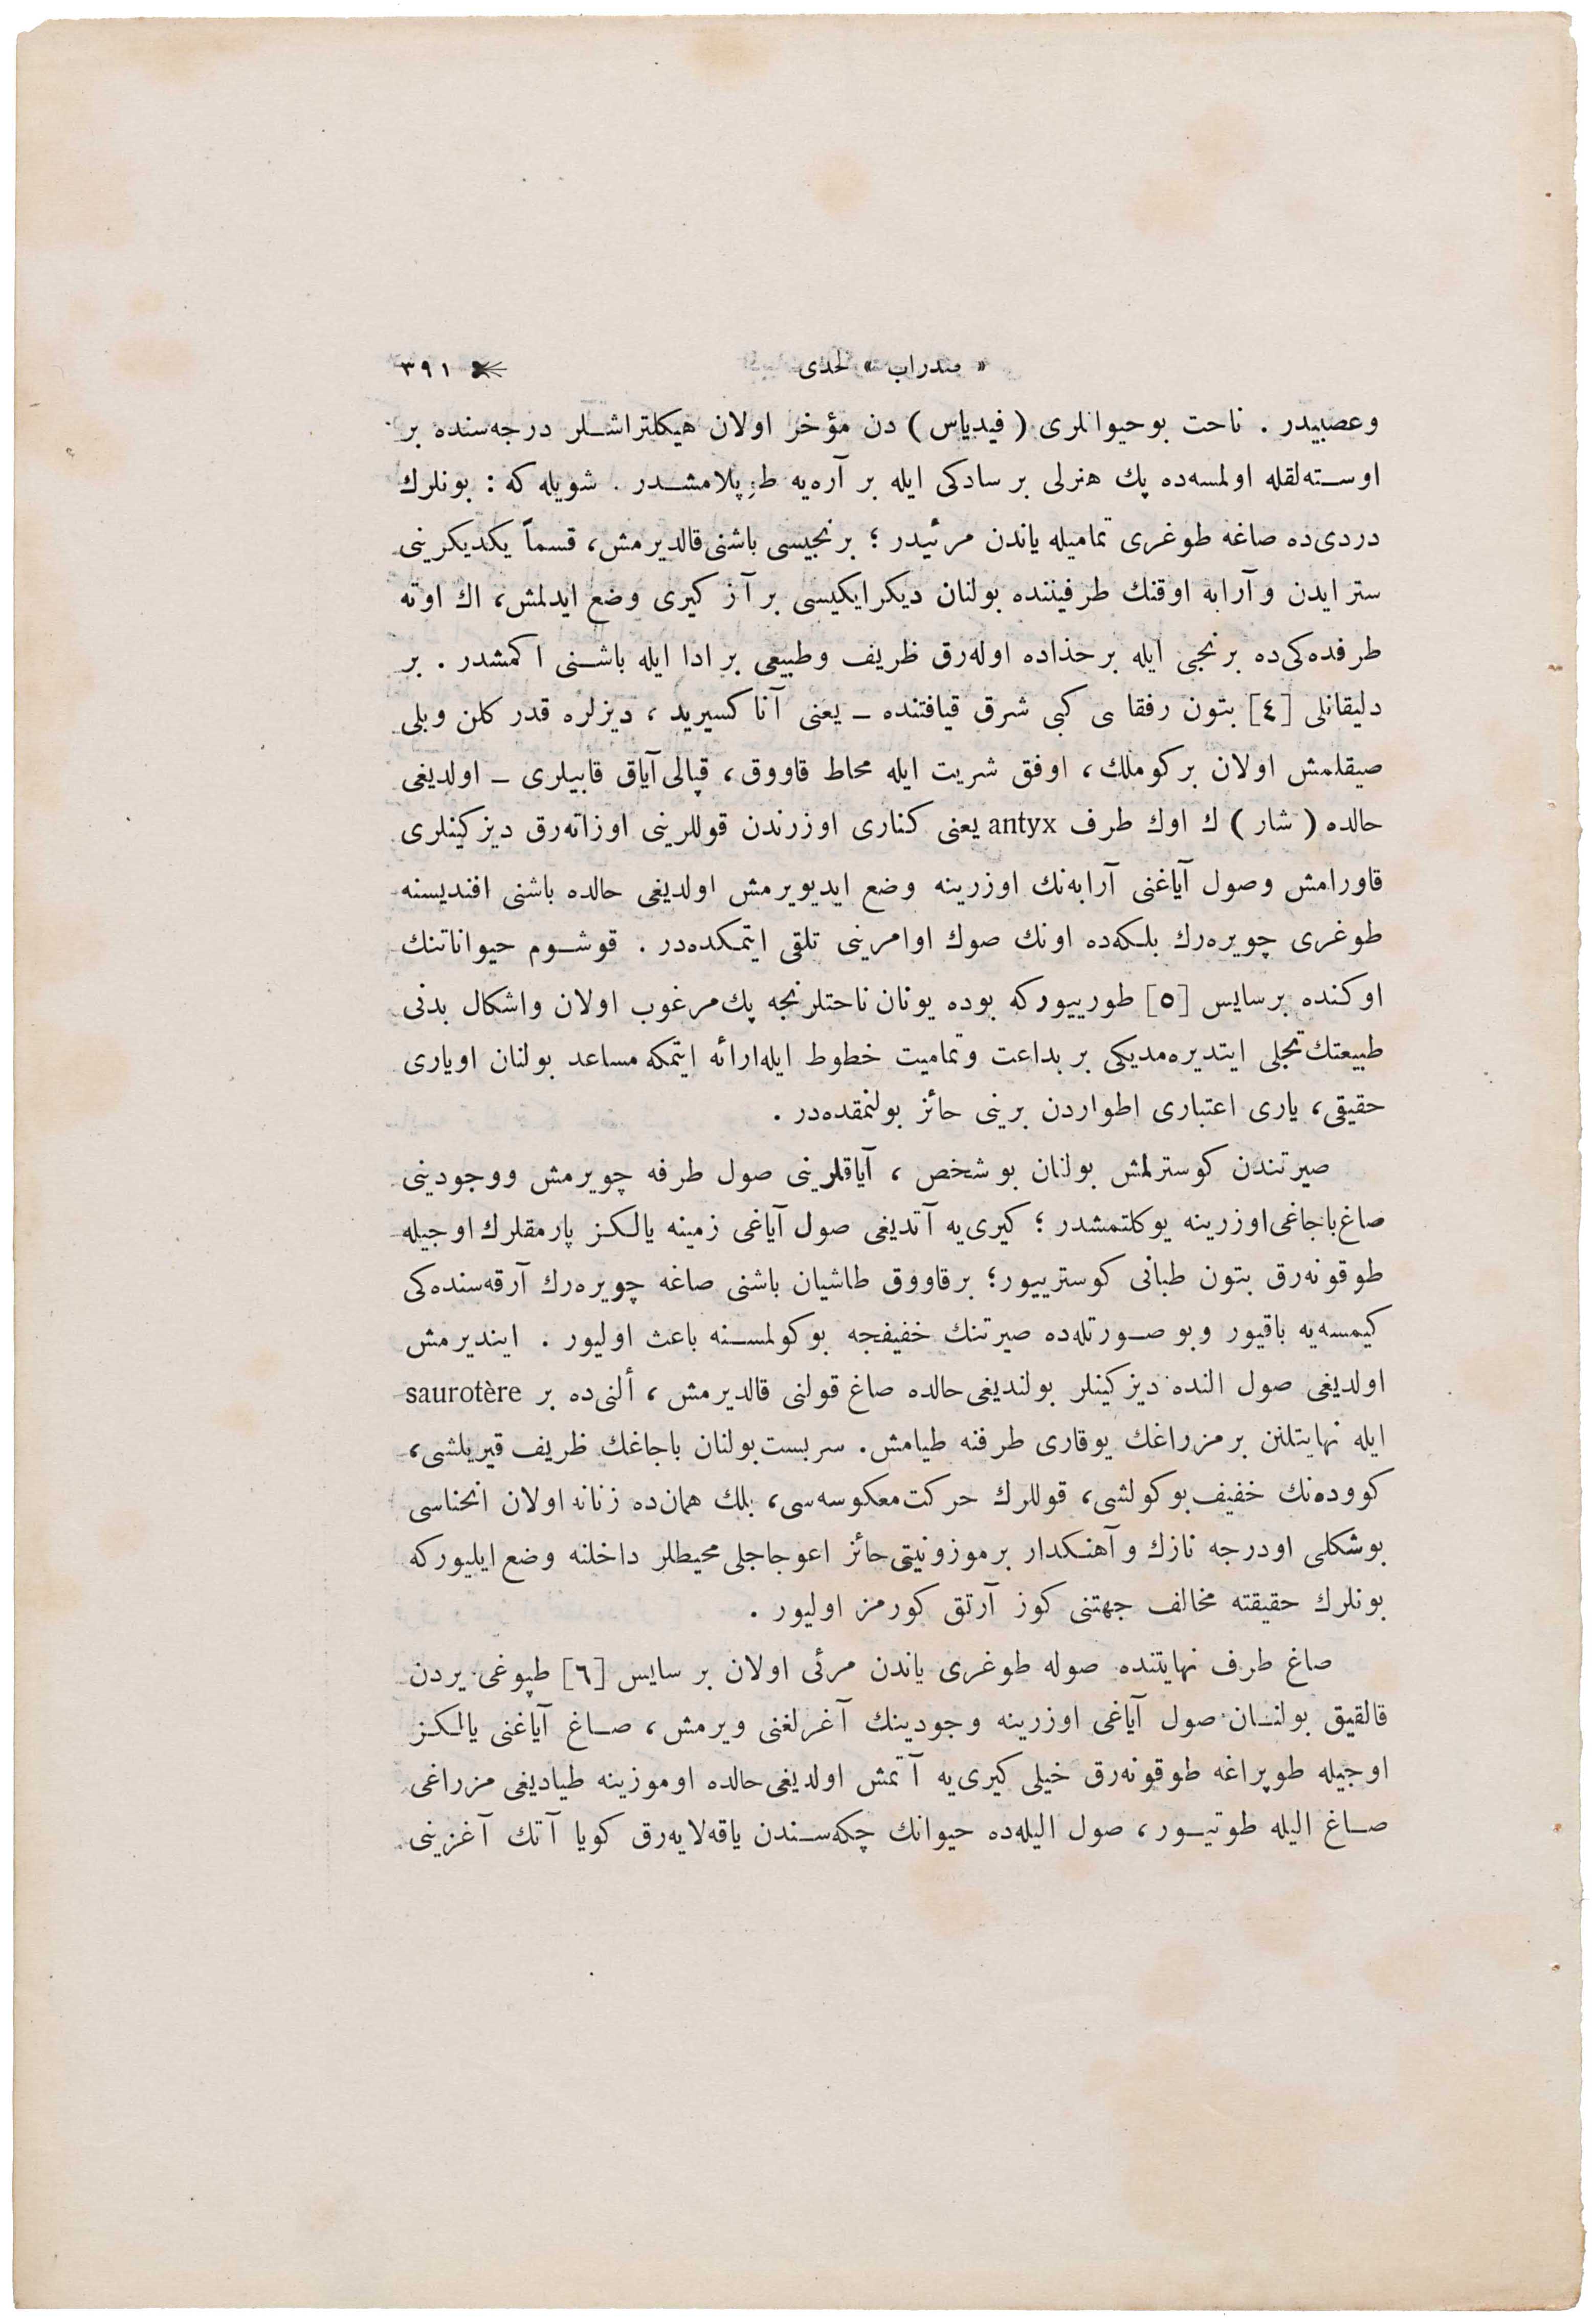 « مندراب » لحدی ٣٩١
وعصبیدر . ناحت بوحیوانلری ( فیدیاس ) دن مؤخر اولان هیکلتراشلر درجه‌سنده بر
اوسته‌لقله اولمسه‌ده پك هنرلی بر سادکی ایله بر آره‌یه طوپلامشدر . شویله که : بونلرك
دردی‌ده صاغه طوغری تمامیله یاندن مرئیدر ؛ برنجیسی باشنی قالدیرمش، قسماً یکدیکرینی
ستر ایدن و آرابه اوقنك طرفیننده بولنان دیکر ایکیسی بر آز کیری وضع ایدلمش، اك اوته
طرفده‌کی‌ده برنجی ایله برحذاده اوله‌رق ظریف وطبیعی بر ادا ایله باشنی اکمشدر . بر
دلیقانلی [٤] بتون رفقا سی کبی شرق قیافتنده ــ یعنی آناکسیرید ، دیزلره قدر کلن وبلی
صیقلمش اولان بر کوملك ، اوفق شریت ایله محاط قاووق ، قپالی آیاق قابیلری ــ اولدیغی
حالده ( شار ) ك اوك طرف antyx یعنی کناری اوزرندن قوللرینی اوزاته‌رق دیزکینلری
قاورامش وصول آیاغنی آرابه‌نك اوزرینه وضع ایدیویرمش اولدیغی حالده باشنی افندیسنه
طوغری چویره‌رك بلکه‌ده اونك صوك اوامرینی تلقی ایتمکده‌در . قوشوم حیواناتنك
اوکنده برسایس [٥] طورییورکه بوده یونان ناحتلرنجه پك مرغوب اولان واشکال بدنی
طبیعتك تجلی ایتدیره‌مدیکی بر بداعت وتمامیت خطوط ایله ارائه ایتمکه مساعد بولنان اویاری
حقیقی ، یاری اعتباری اطواردن برینی حائز بولنمقده‌در .
صیرتندن کوسترلمش بولنان بو شخص ، آیاقلرینی صول طرفه چویرمش ووجودینی
صاغ باجاغی اوزرینه یوکلتمشدر ؛ کیری‌یه آتدیغی صول آیاغی زمینه یالکز پارمقلرك اوجیله
طوقونه‌رق بتون طبانی کوسترییور؛ بر قاووق طاشیان باشنی صاغه چویره‌رك آرقه‌سنده‌کی
کیمسه‌یه باقیور وبو صورتله‌ده صیرتنك خفیفجه بوکولمسنه باعث اولیور . ایندیرمش
اولدیغی صول النده دیزکینلر بولندیغی حالده صاغ قولنی قالدیرمش ، ألنی‌ده بر saurotère
ایله نهایتلنن بر مزراغك یوقاری طرفنه طیامش. سربست بولنان باجاغك ظریف قیریلشی ،
کووده‌نك خفیف بوکولشی، قوللرك حرکت معکوسه‌سی، بلك همان‌ده زنانه اولان انحناسی
بوشکلی اودرجه نازك و آهنکدار برموزونیتی حائز اعوجاجلی محیطلر داخلنه وضع ایلیورکه
بونلرك حقیقته مخالف جهتنی کوز آرتق کورمز اولیور .
صاغ طرف نهایتنده صوله طوغری یاندن مرئی اولان بر سایس [٦] طپوغی یردن
قالقیق بولنان صول آیاغی اوزرینه وجودینك آغرلغنی ویرمش ، صاغ آیاغنی یالکز
اوجیله طوپراغه طوقونه‌رق خیلی کیری‌یه آتمش اولدیغی حالده اوموزینه طیادیغی مزراغی
صاغ الیله طوتیور ، صول الیله‌ده حیوانك چکه‌سندن یاقه‌لایه‌رق کویا آتك آغزینی